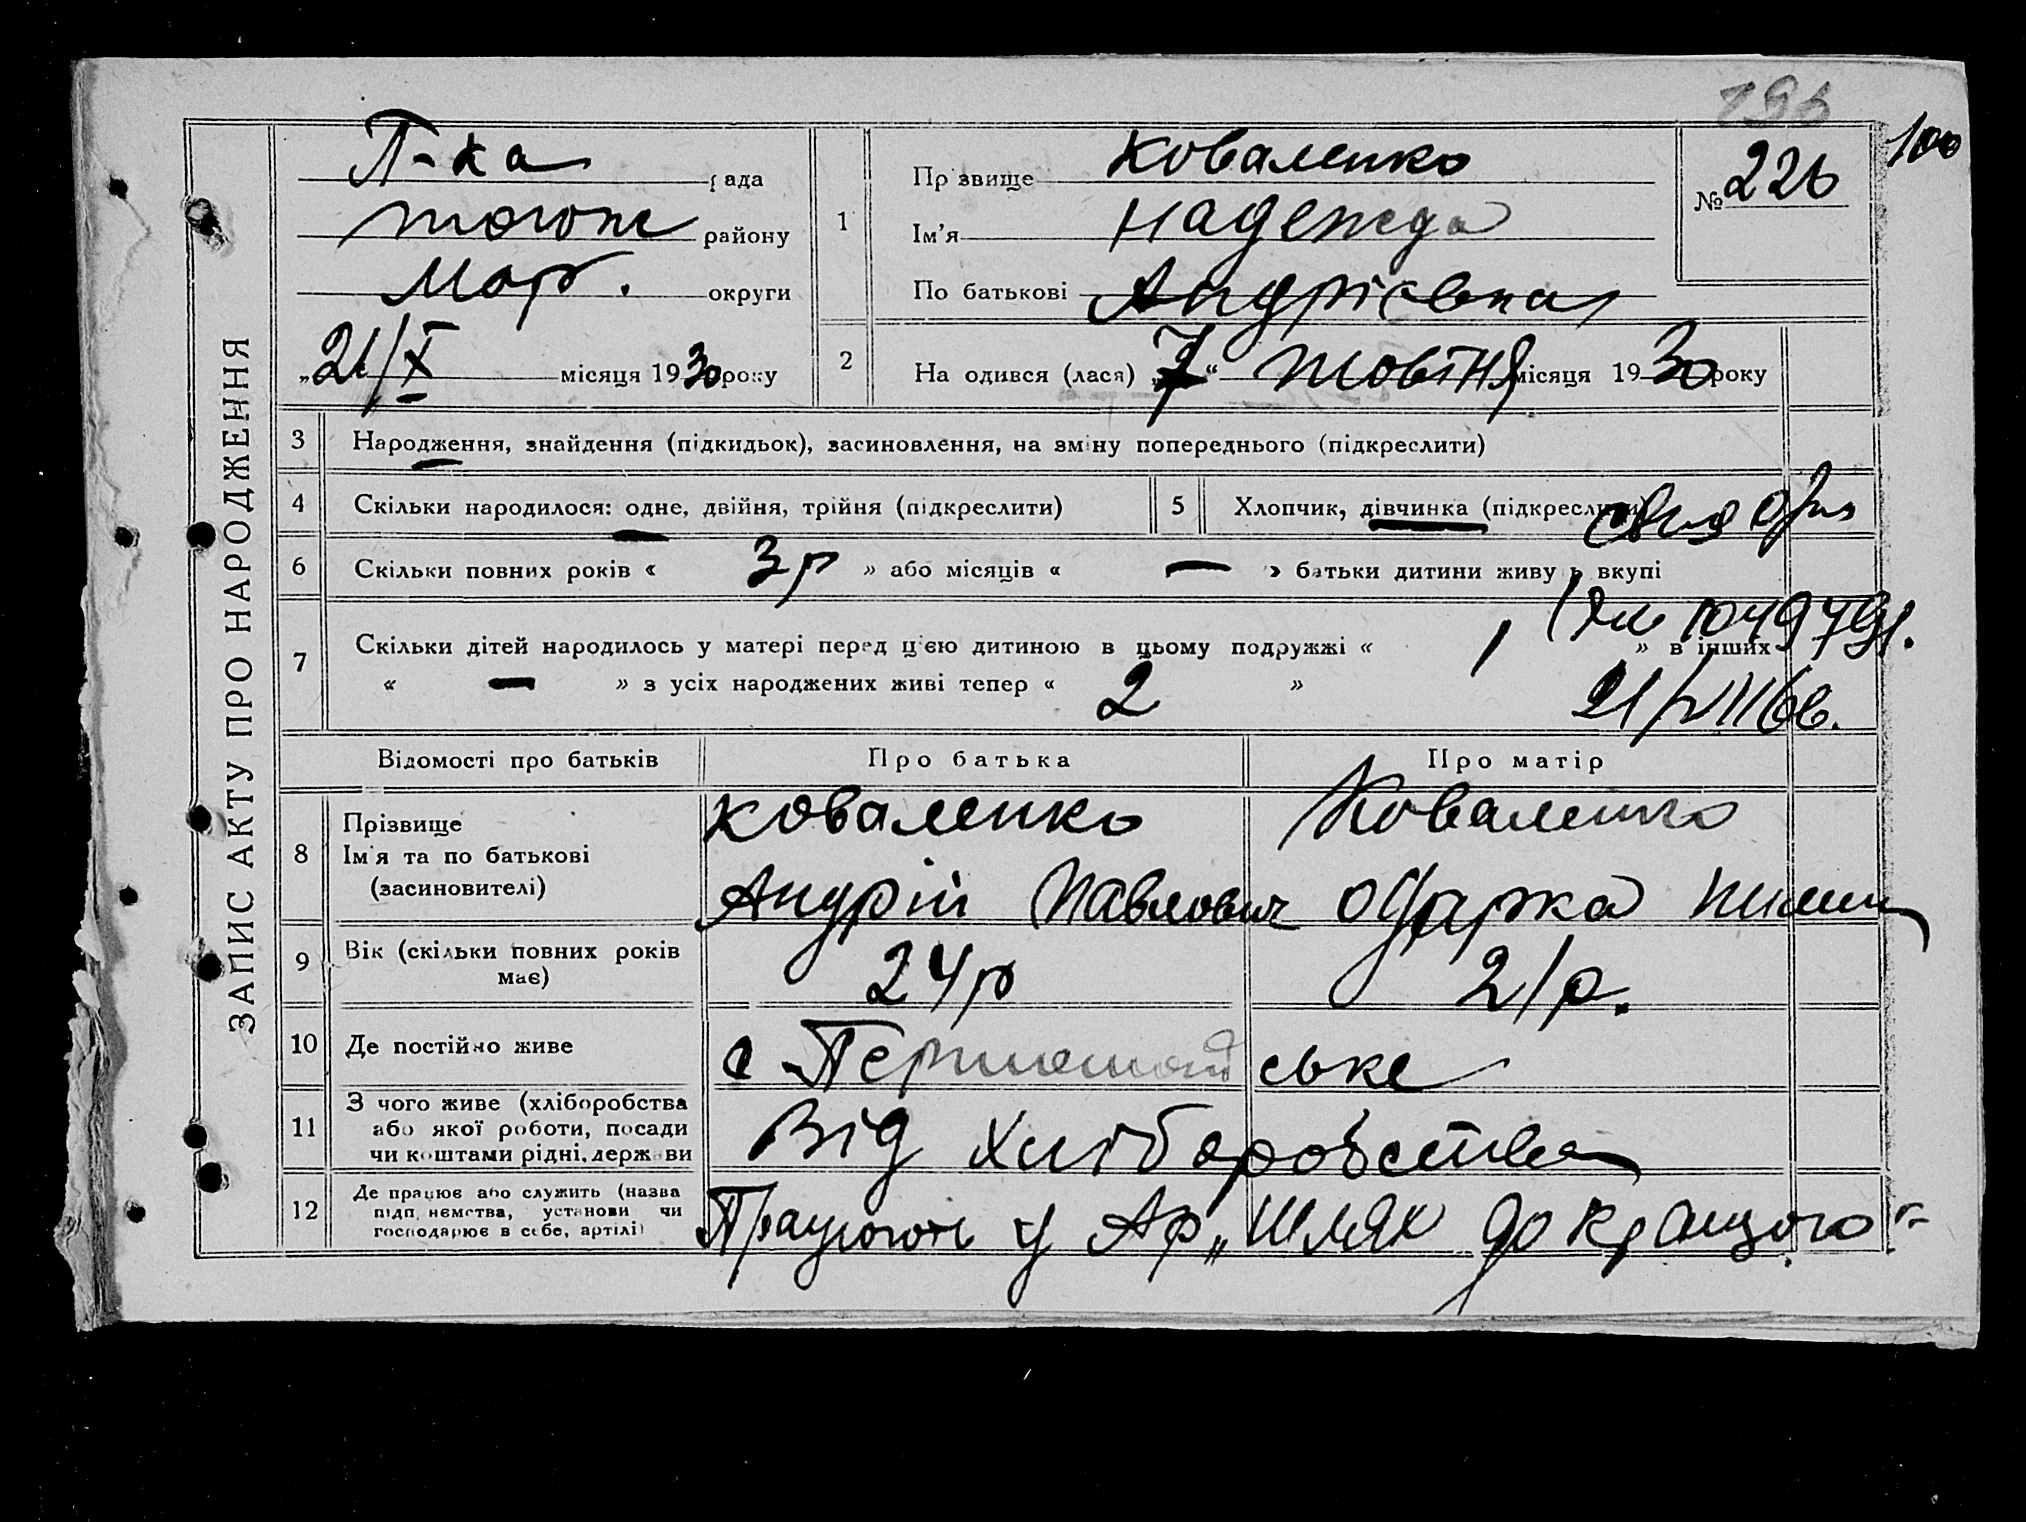 100
П-ка рада
тогож району
Мар. округи
„21/X місяця 1930 року
1
Прізвище Коваленко
Ім'я Надежда
По батькові Андрієвна
№ 226
2
На одився (лася) „7“ жовтня місяця 1930 року
ЗАПИС АКТУ ПРО НАРОДЖЕННЯ
3 Народження, знайдення (підкидьок), засиновлення, на зміну попереднього (підкреслити)
4 Скільки народилося: одне, двійня, трійня (підкреслити)
5 Хлопчик, дівчинка (підкреслити)
6 Скільки повних років « 3 р » або місяців « — » батьки дитини живуть вкупі
7 Скільки дітей народилось у матері перед цією дитиною в цьому подружжі « 1 » в інших
« — » з усіх народжених живі тепер « 2 »
Відомості про батьків
Про батька
Про матір
8
Прізвище
Ім'я та по батькові
(засиновителі)
Коваленко
Андрій Павлович
Коваленко
Одарка
9
Вік (скільки повних років
має)
24 р
21 р.
10 Де постійно живе
с Першотравенське
11
З чого живе (хліборобства
або якої роботи, посади
чи коштами рідні, держави
Від хліборобства
12
Де працює або служить (назва
підп немства, установи чи
господарює в себе, артілі)
Працюють у Ар „Шлях до кращого“